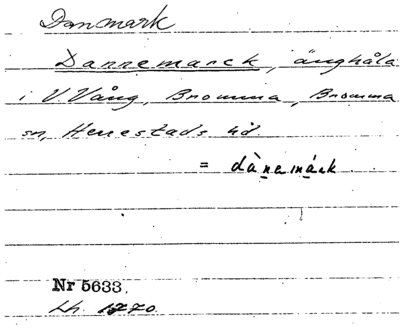 Danmark
Dannemarck, änghåla
i V. Vång, Bromma, Bromma
sn, Herrestads hd.
= dànemárck
Nr 5633.
Lh. 1770.